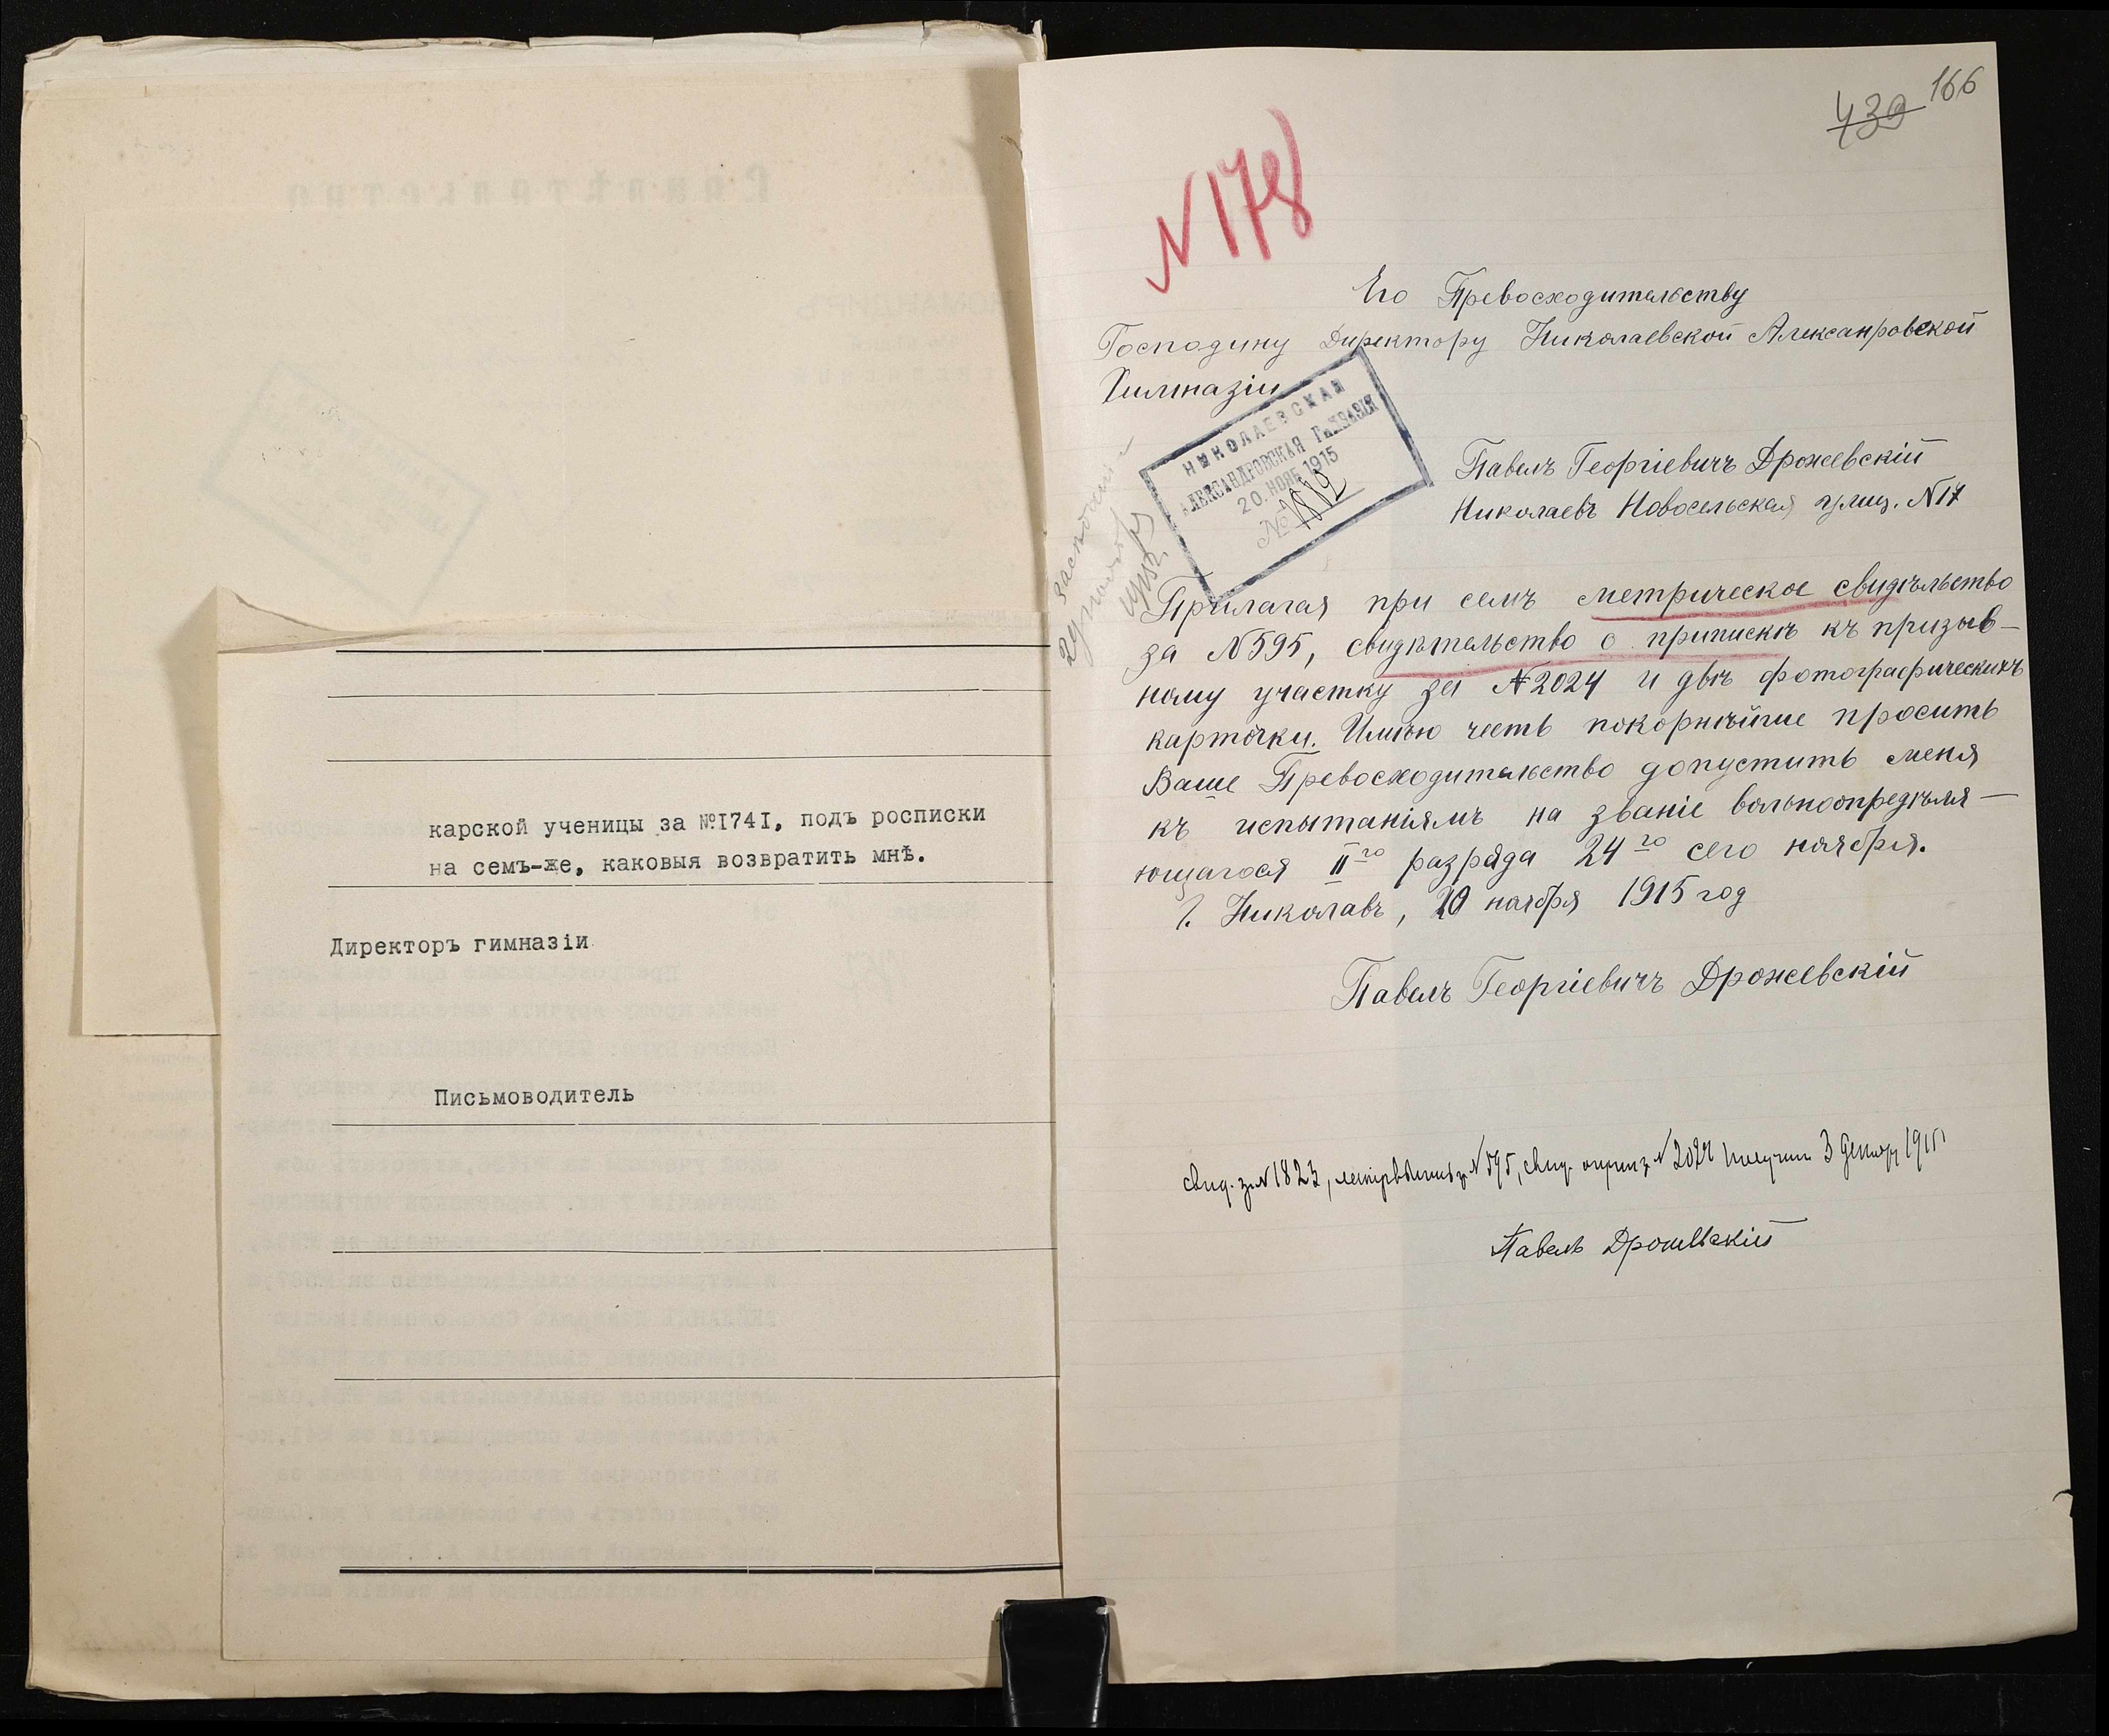 карской ученицы за №I74I, подъ росписки
на семъ-же, каковыя возвратить мнѣ.
Директоръ гимназіи
Письмоводитель
166
439
N178
Его Превосходительству
Господину Директору Николаевской Алексанровской
Гимназіи
НИКОЛАЕВСКАЯ
АЛЕКСАНДРОВСКАЯ ГИМНАЗІЯ
20. НОЯБ 1915
№
Павелъ Георгіевичъ Дрожевскій
Николаевъ Новосельская улиц. N17
Прилагая при семъ метрическое свидѣльство
за N595, свидѣтельство о припискѣ къ призыв-
ному участку за N2024 и двѣ фотографическихъ
карточки. Имѣю честь покорнѣйше просить
Ваше Превосходительство допустить меня
къ испытаніямъ на званіе вольноопредѣля-
ющагося II го разряда 24 го сего ноября.
Г. Николавъ, 20 ноября 1915 год
Павелъ Георгіевичъ Дрожевскій
свид. за N1823, N595, свид. N2024 получил 3 декабр 1915
Павелъ Дрожевскій